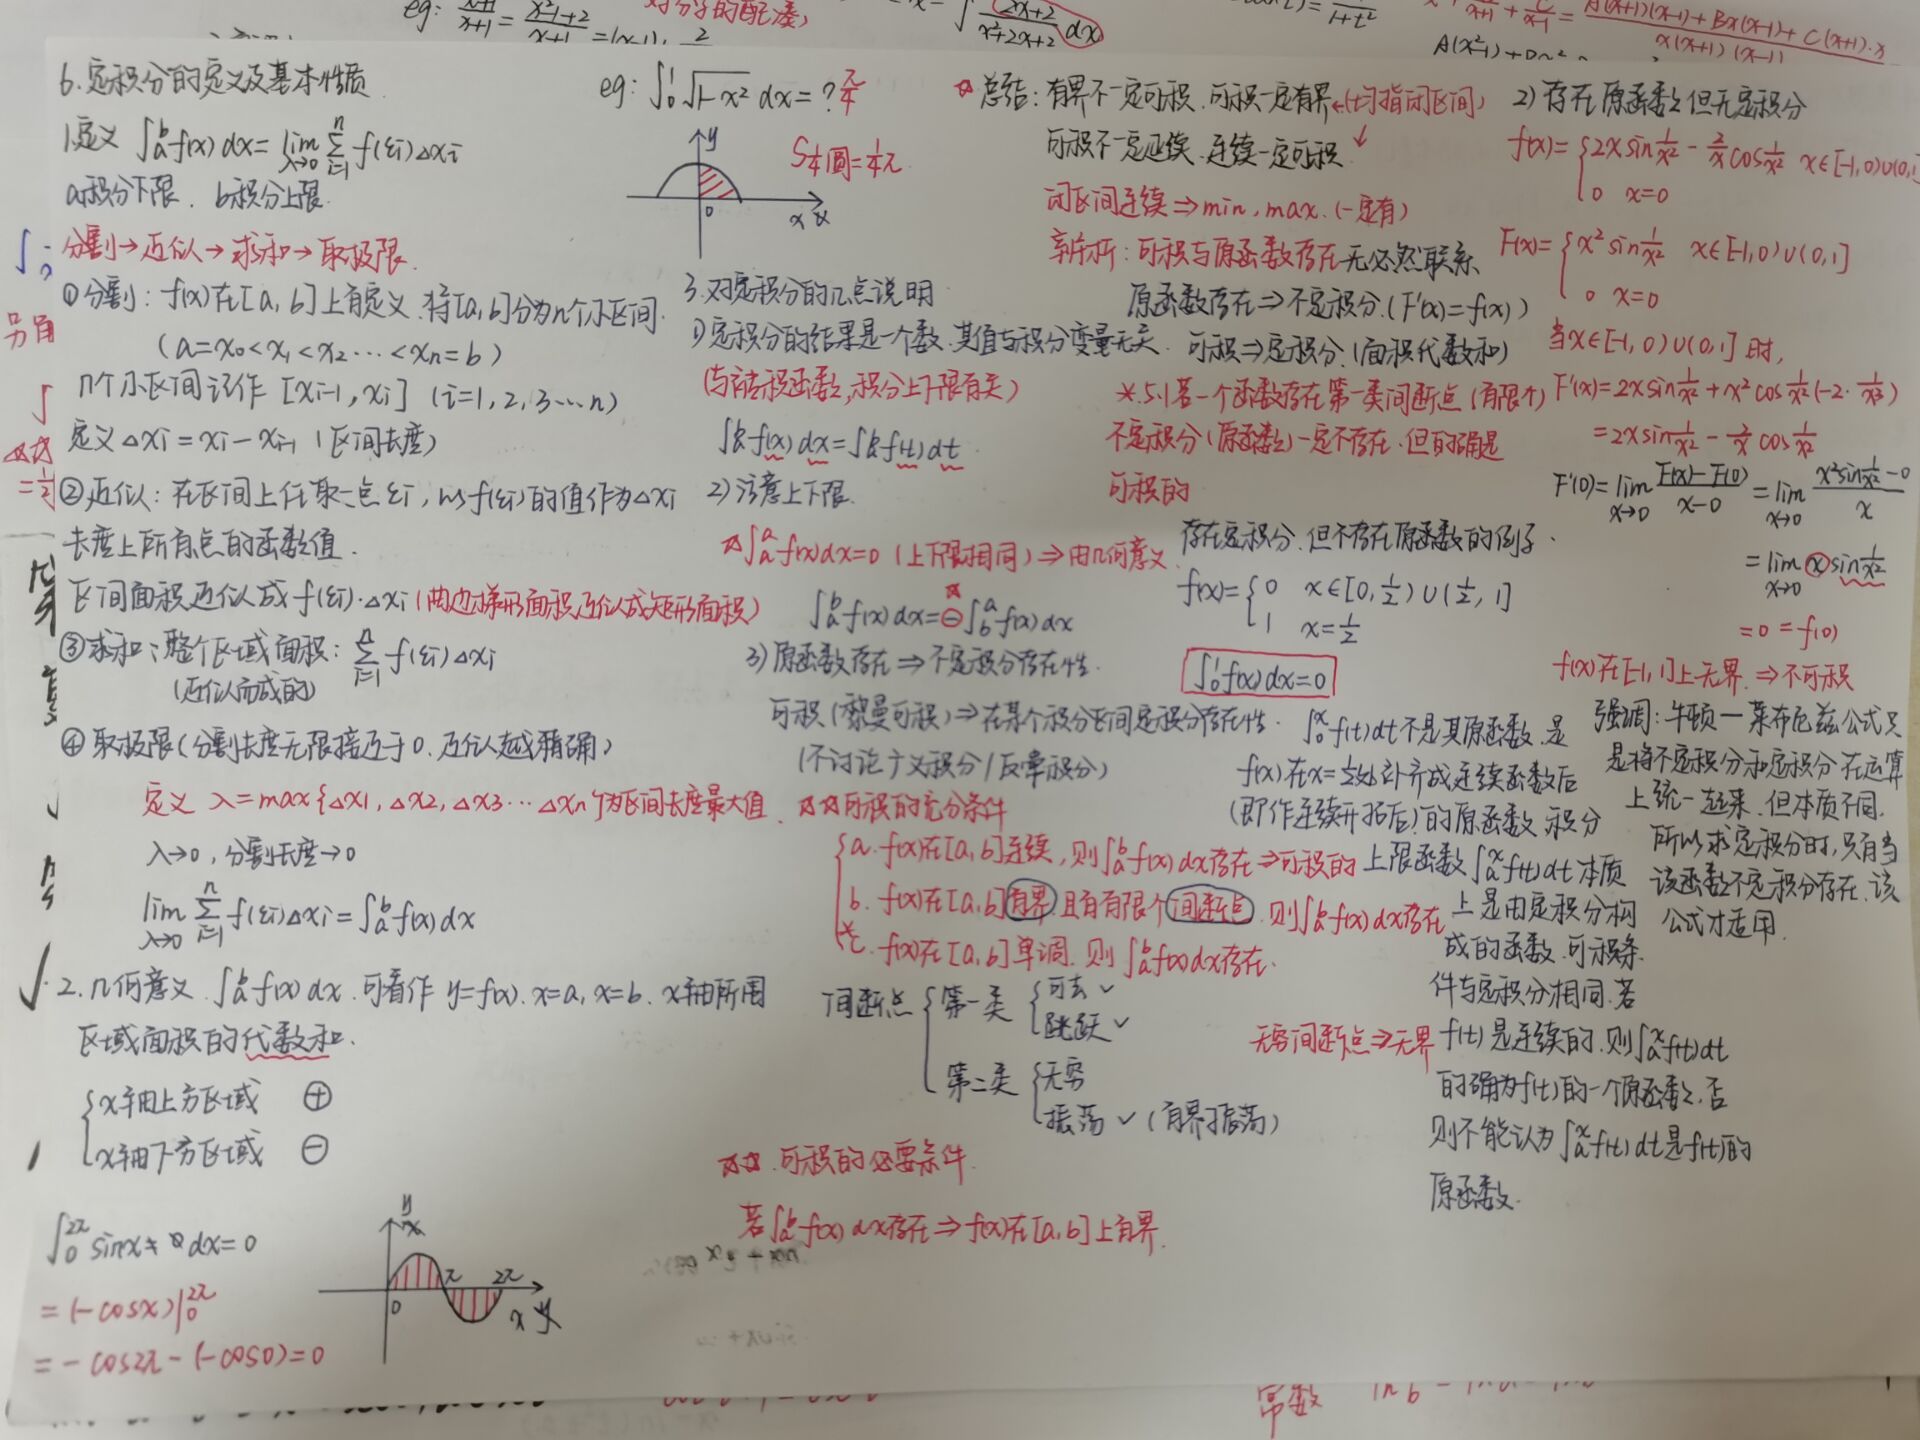 6. 定积分的定义及基本性质
1.定义 ∫_a^b f(x)dx = lim_{λ→0} Σ_{i=1}^n f(εi)△xi
a积分下限. b积分上限.
分割→近似→求和→取极限.
①分割: f(x)在[a,b]上有定义.将[a,b]分为n个小区间.
(a=x0<x1<x2…<xn=b)
n个小区间记作 [xi-1, xi] (i=1,2,3…n)
定义△xi = xi - xi-1 (区间长度)
②近似: 在区间上任取一点εi, 以f(εi)的值作为△xi
长度上所有点的函数值.
区间面积近似成 f(εi)·△xi (曲边梯形面积近似成矩形面积)
③求和: 整个区域面积: Σ_{i=1}^n f(εi)△xi
(近似而成的)
④取极限(分割长度无限接近于0.近似越精确)
定义 λ=max{△x1, △x2, △x3…△xn}为区间长度最大值.
λ→0, 分割长度→0
lim_{λ→0} Σ_{i=1}^n f(εi)△xi = ∫_a^b f(x)dx
2.几何意义. ∫_a^b f(x)dx.可看作 y=f(x). x=a, x=b. x轴所围
区域面积的代数和.
x轴上方区域 ⊕
x轴下方区域 ⊖
∫_0^{2π} sinx dx=0
=(-cosx)|_0^{2π}
=-cos2π-(-cos0)=0
y
0 π 2π
x
eg: ∫_0^1 √(1-x²) dx=? π/4
y
0 x
S¼圆=¼π
3.对定积分的几点说明
1)定积分的结果是一个数.其值与积分变量无关.
(与被积函数,积分上下限有关)
∫_a^b f(x)dx=∫_a^b f(t)dt
2)注意上下限.
☆∫_a^a f(x)dx=0 (上下限相同)⇒由几何意义
☆
∫_a^b f(x)dx=⊖∫_b^a f(x)dx
3)原函数存在⇒不定积分存在性.
可积(黎曼可积)⇒在某个积分区间定积分存在性.
(不讨论广义积分/反常积分)
☆☆可积的充分条件
a. f(x)在[a,b]连续,则∫_a^b f(x)dx存在⇒可积的
b. f(x)在[a,b]有界.且有有限个间断点.则∫_a^b f(x)dx存在
*c. f(x)在[a,b]单调.则∫_a^b f(x)dx存在.
间断点
第一类
可去✓
跳跃✓
第二类
无穷
振荡✓(有界振荡)
无穷间断点⇒无界
☆☆.可积的必要条件.
若∫_a^b f(x)dx存在⇒f(x)在[a,b]上有界.
☆总结: 有界不一定可积.可积一定有界←(均指闭区间)
可积不一定连续.连续一定可积↙
闭区间连续⇒min, max. (一定有)
辨析: 可积与原函数存在无必然联系.
原函数存在⇒不定积分.(F'(x)=f(x))
可积⇒定积分.(面积代数和)
*.5.1若一个函数存在第一类间断点(有限个)
不定积分(原函数)一定不存在.但的确是
可积的
存在定积分.但不存在原函数的例子.
f(x)={0 x∈[0,½)∪(½,1]
1 x=½
∫_0^1 f(x)dx=0
∫_0^x f(t)dt不是其原函数.是
f(x)在x=½处补齐成连续函数后
(即作连续开拓后)的原函数.积分
上限函数∫_a^x f(t)dt本质
上是由定积分构
成的函数.可积条
件与定积分相同.若
f(t)是连续的.则∫_a^x f(t)dt
的确为f(t)的一个原函数.否
则不能认为∫_a^x f(t)dt是f(t)的
原函数.
2)存在原函数但无定积分
f(x)={2x sin 1/x² - 2/x cos 1/x² x∈[-1,0)∪(0,1]
0 x=0
F(x)={x² sin 1/x² x∈[-1,0)∪(0,1]
0 x=0
当x∈[-1,0)∪(0,1]时,
F'(x)=2x sin 1/x² + x² cos 1/x² (-2·1/x³)
=2x sin 1/x² - 2/x cos 1/x²
F'(0)=lim_{x→0} (F(x)-F(0))/(x-0) = lim_{x→0} (x² sin 1/x² -0)/x
=lim_{x→0} x sin 1/x²
=0=f(0)
f(x)在[-1,1]上无界.⇒不可积
强调: 牛顿一莱布尼兹公式只
是将不定积分和定积分在运算
上统一起来.但本质不同.
所以求定积分时,只有当
该函数不定积分存在.该
公式才适用.